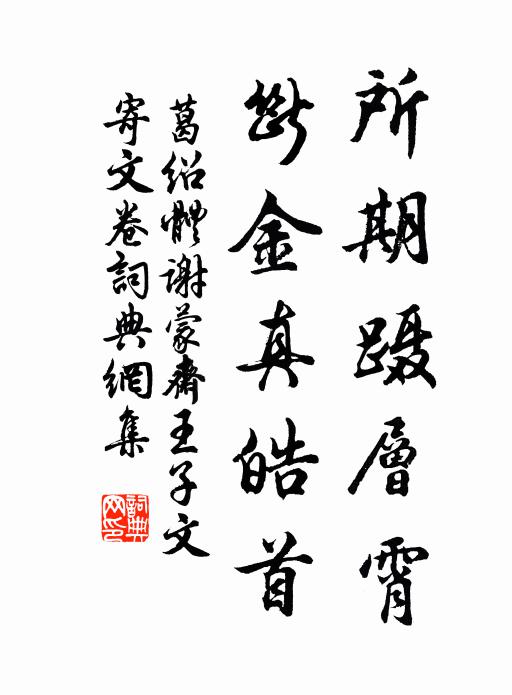 所期蹑層霄
斷金真皓首
葛紹體謝蒙齋王子文
寄文卷詞典網集
詞典
网印